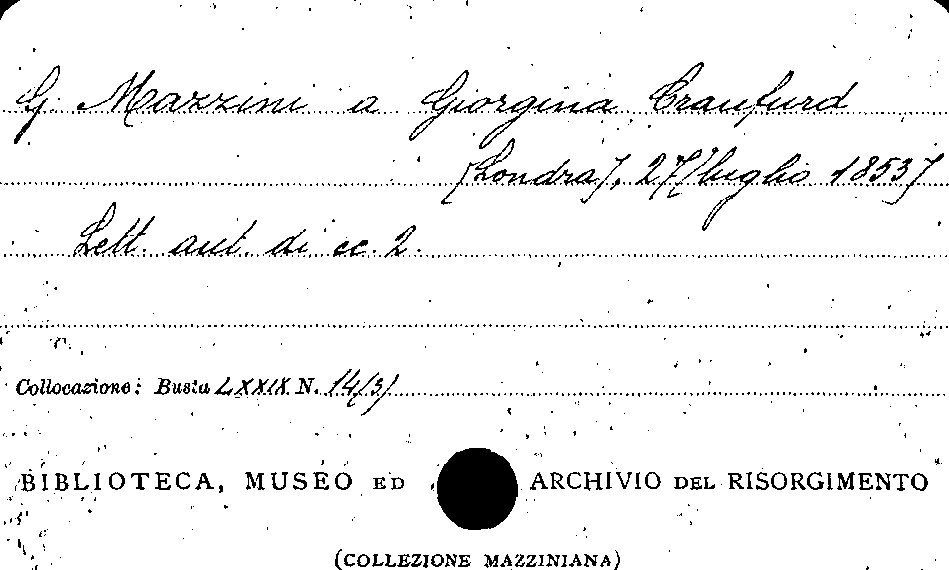 G. Mazzini a Giorgina Craufurd
[Londra], 27 [luglio 1853]
Lett. aut. di cc. 2.
Collocazione: Busta LXXIX N. 14(3)
BIBLIOTECA, MUSEO ED ARCHIVIO DEL RISORGIMENTO
(COLLEZIONE MAZZINIANA)